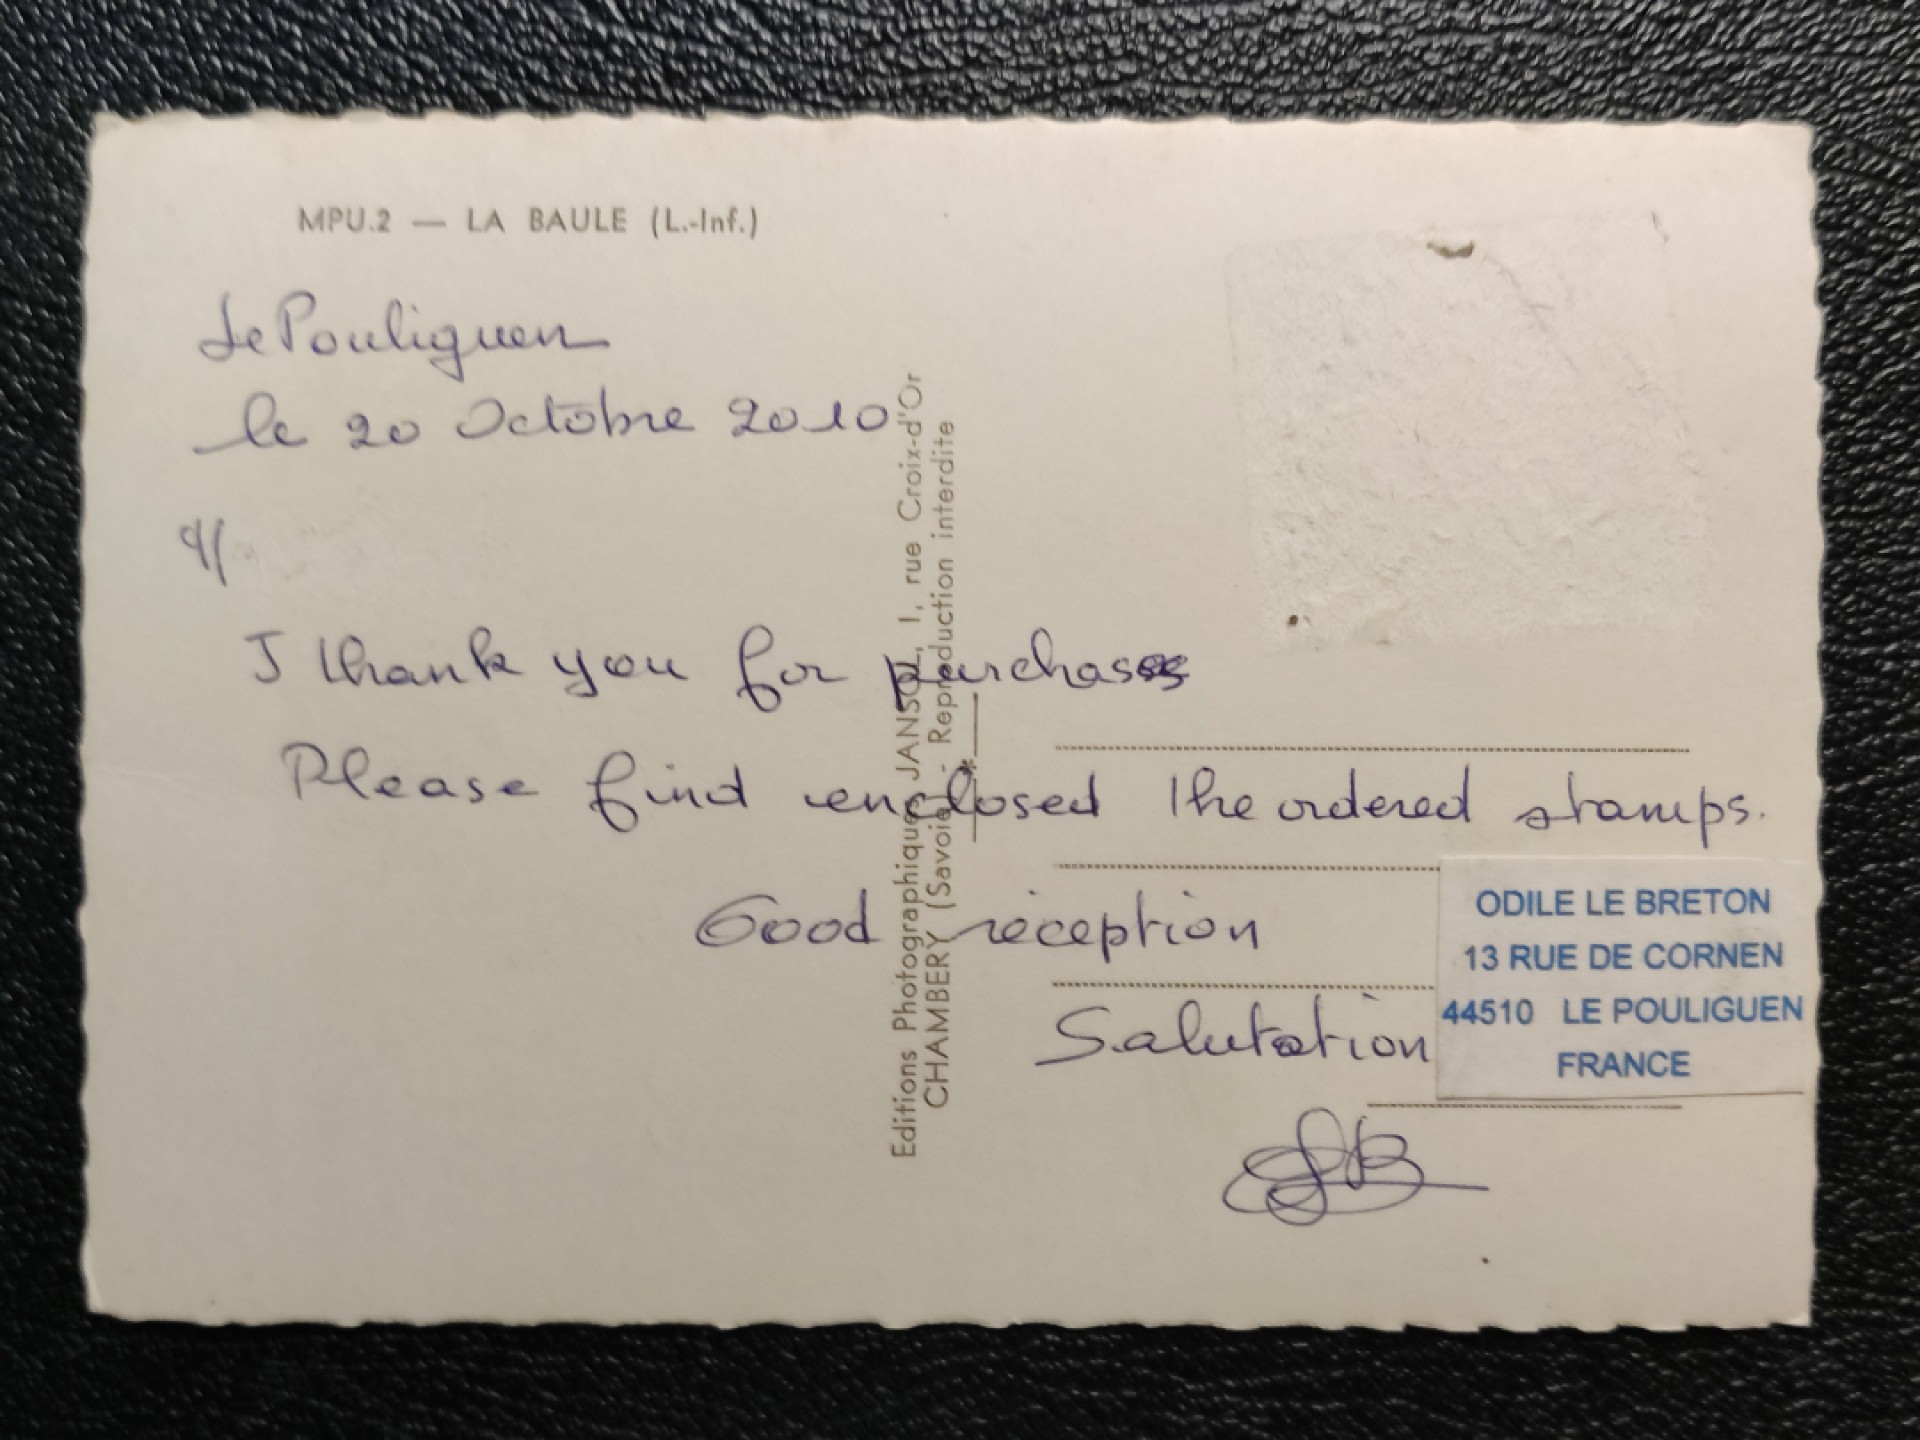 MPU.2 — LA BAULE (L.-Inf.)
Le Pouliguen
le 20 Octobre 2010
I thank you for purchases
Please find enclosed the ordered stamps.
Good réception
Salutation
Editions Photographiques JANSOL, 1, rue Croix-d'Or
CHAMBERY (Savoie) - Reproduction interdite
ODILE LE BRETON
13 RUE DE CORNEN
44510 LE POULIGUEN
FRANCE